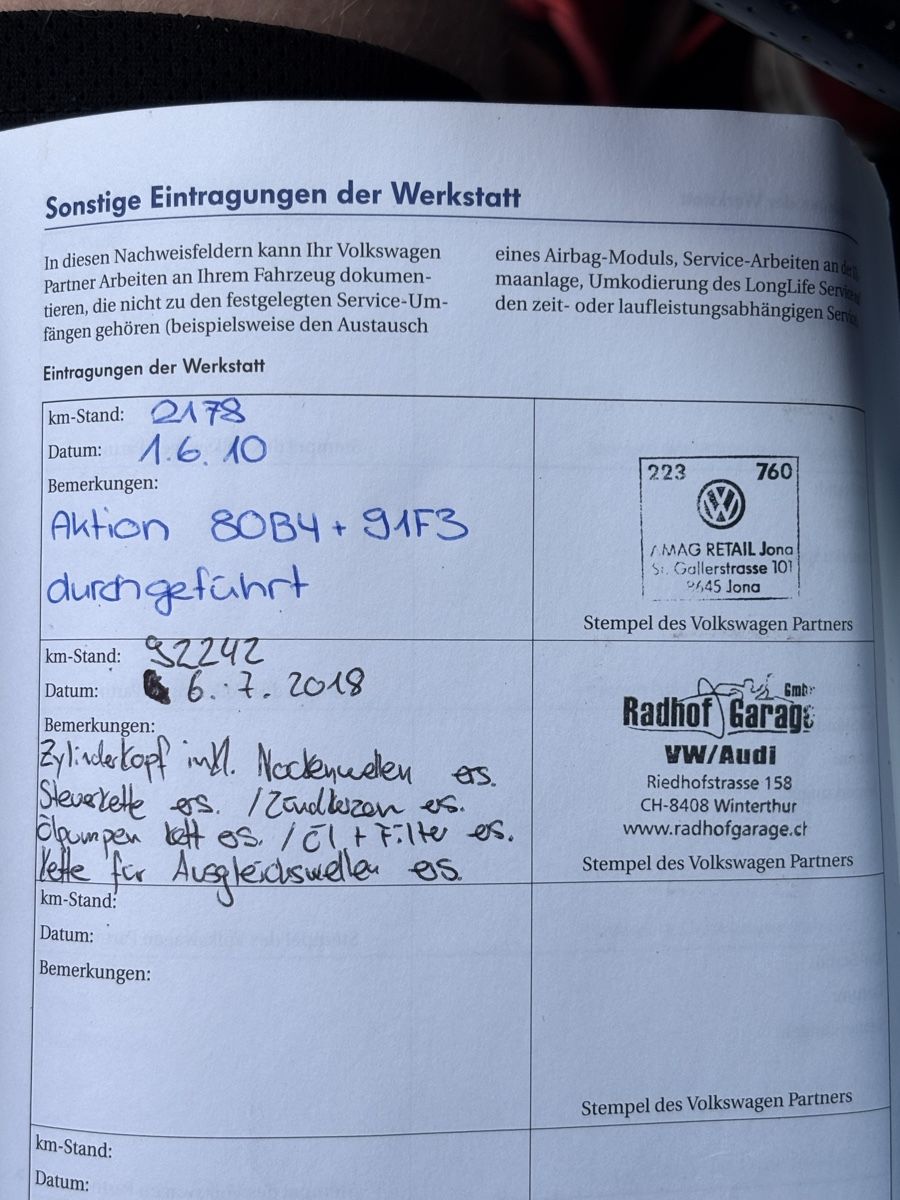 Sonstige Eintragungen der Werkstatt
In diesen Nachweisfeldern kann Ihr Volkswagen
Partner Arbeiten an Ihrem Fahrzeug dokumen-
tieren, die nicht zu den festgelegten Service-Um-
fängen gehören (beispielsweise den Austausch
eines Airbag-Moduls, Service-Arbeiten an der
maanlage, Umkodierung des LongLife Service
den zeit- oder laufleistungsabhängigen
Eintragungen der Werkstatt
km-Stand: 2178
Datum: 1.6.10
Bemerkungen:
Aktion 80B4 + 91F3
durchgeführt
223 760
AMAG RETAIL Jona
St. Gallerstrasse 101
8645 Jona
Stempel des Volkswagen Partners
km-Stand: 92242
Datum: 6.7.2018
Bemerkungen:
Zylinderkopf inkl. Nockenwellen ers.
Steuerkette ers. / Zündkerzen ers.
Ölpumpen kett ers. / Öl + Filter ers.
Kette für Ausgleichswellen ers.
GmbH
Radhof Garage
VW/Audi
Riedhofstrasse 158
CH-8408 Winterthur
www.radhofgarage.ch
Stempel des Volkswagen Partners
km-Stand:
Datum:
Bemerkungen:
Stempel des Volkswagen Partners
km-Stand:
Datum: